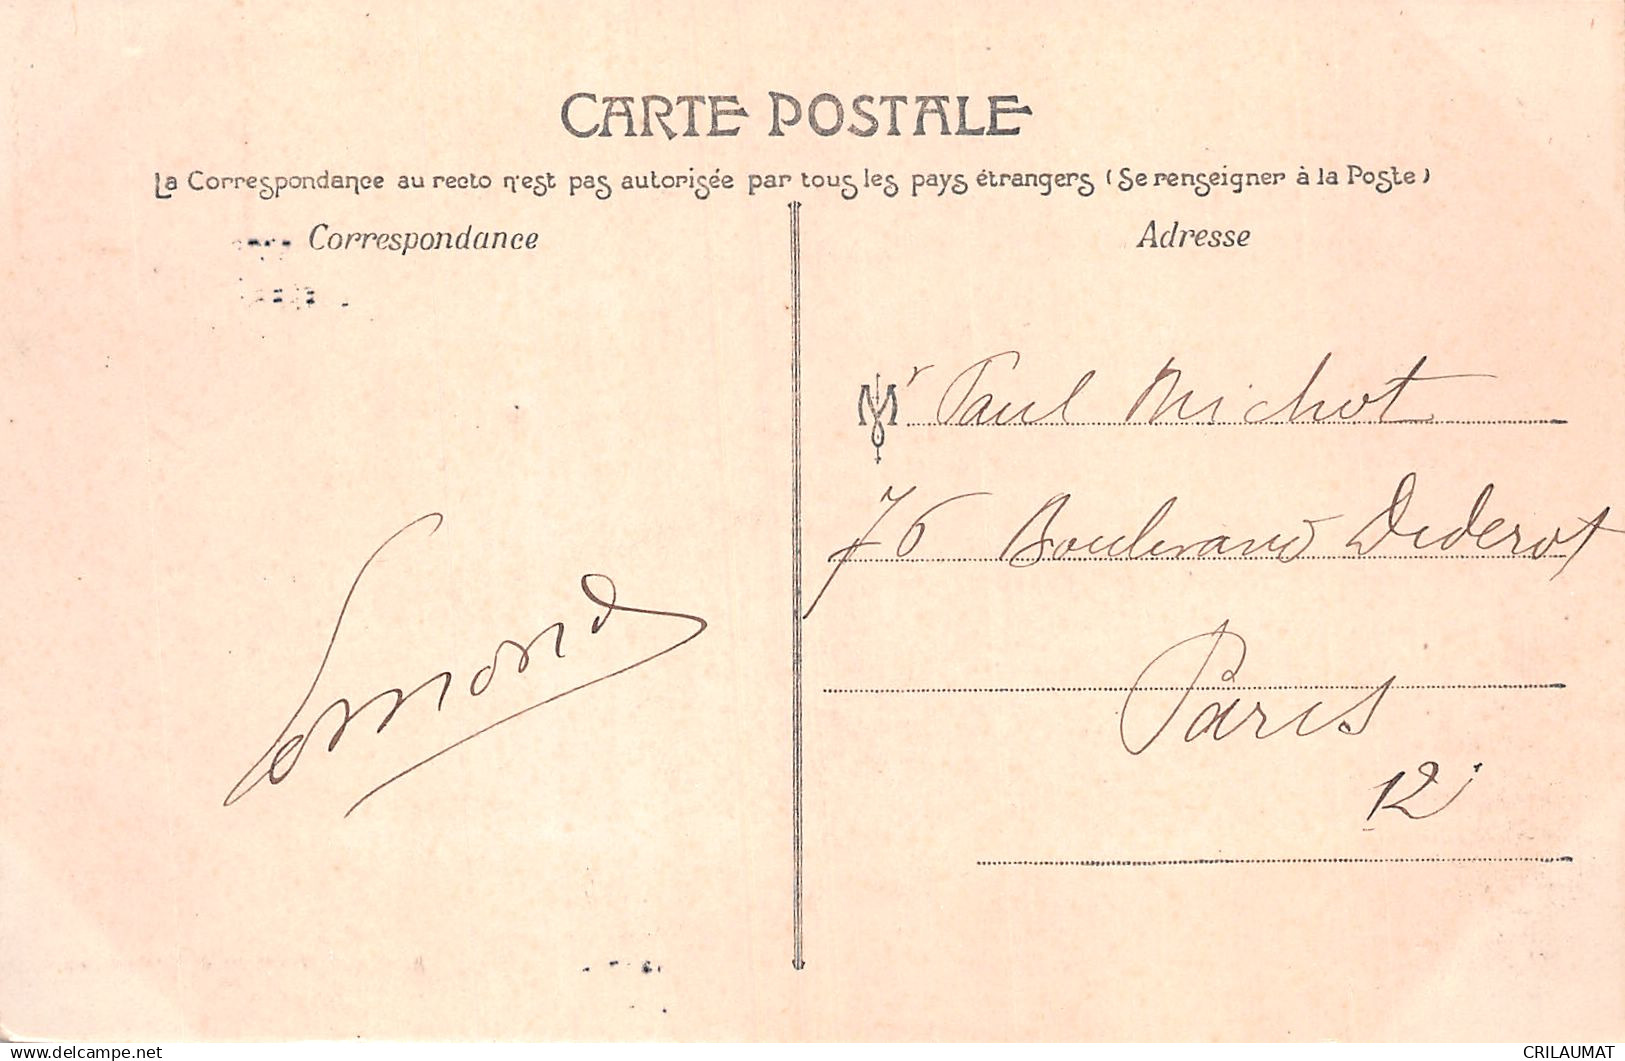 CARTE POSTALE
La Correspondance au recto n'est pas autorisée par tous les pays étrangers (Se renseigner à la Poste)
Correspondance
Adresse
Mr Paul Michot
76 Boulevard Diderot
Paris
12
CRILAUMAT